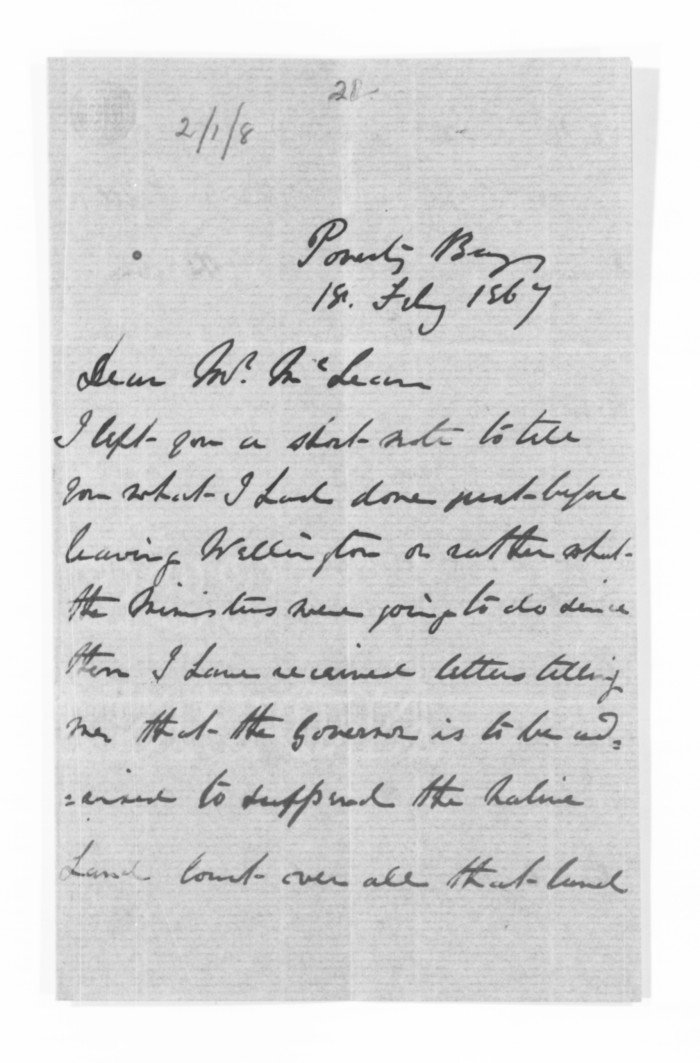 28
2/1/8
Poverty Bay
18. Feby 1867
Dear Mr. McLean
I left you a short note to tell
you what I had done just before
leaving Wellington or rather what
the Ministers were going to do since
then I have received letters telling
me that the Governor is to be ad=
=vised to suspend the Native
Land Court over all that land